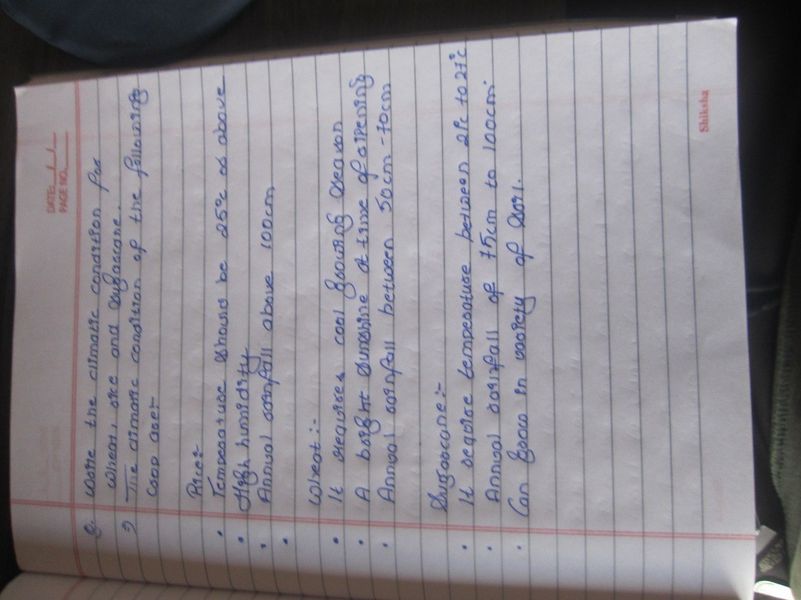 DATE:
PAGE NO.
Q. Write the climatic condition for
wheat, rice and sugarcane.
The climatic condition of the following
crop are:-
Rice:-
• Temperature should be 25°c or above
• High humidity
• Annual rainfall above 100cm
•
Wheat:-
• It requires cool growing season
• A bright sunshine at time of ripening
• Annual rainfall between 50cm-70cm
Sugarcane:-
• It require temperature between 21°c to 27°c
• Annual rainfall of 75cm to 100cm.
• Can grow in variety of soil.
Shiksha